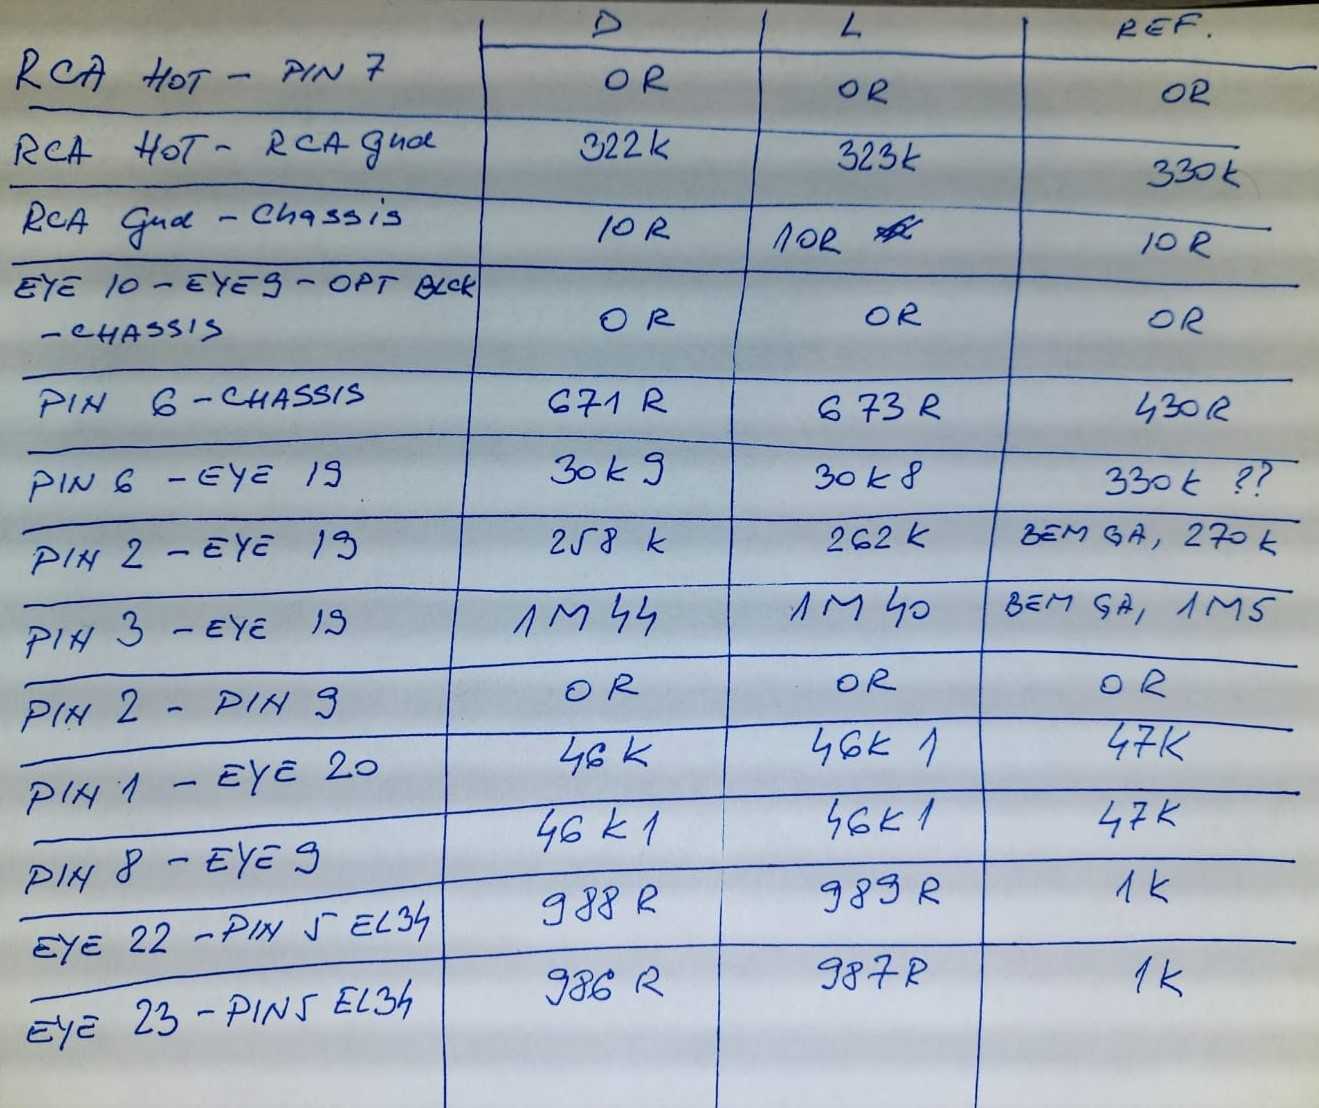 D L REF.
RCA HOT - PIN 7 0R 0R 0R
RCA HOT - RCA gnd 322k 323k 330k
RCA Gnd - Chassis 10R 10R 10R
EYE 10 - EYE 9 - OPT BLCK
- CHASSIS 0R 0R 0R
PIN 6 - CHASSIS 671 R 673 R 430R
PIN 6 - EYE 19 30k 9 30k8 330k ??
PIN 2 - EYE 19 258 k 262k BEM GA, 270k
PIN 3 - EYE 19 1M 44 1M 40 BEM GA, 1M5
PIN 2 - PIN 9 0R 0R 0R
PIN 1 - EYE 20 46K 46K 1 47K
PIN 8 - EYE 9 46 K1 46K1 47K
EYE 22 - PIN 5 EL34 988 R 989 R 1K
EYE 23 - PIN5 EL34 986 R 987R 1K